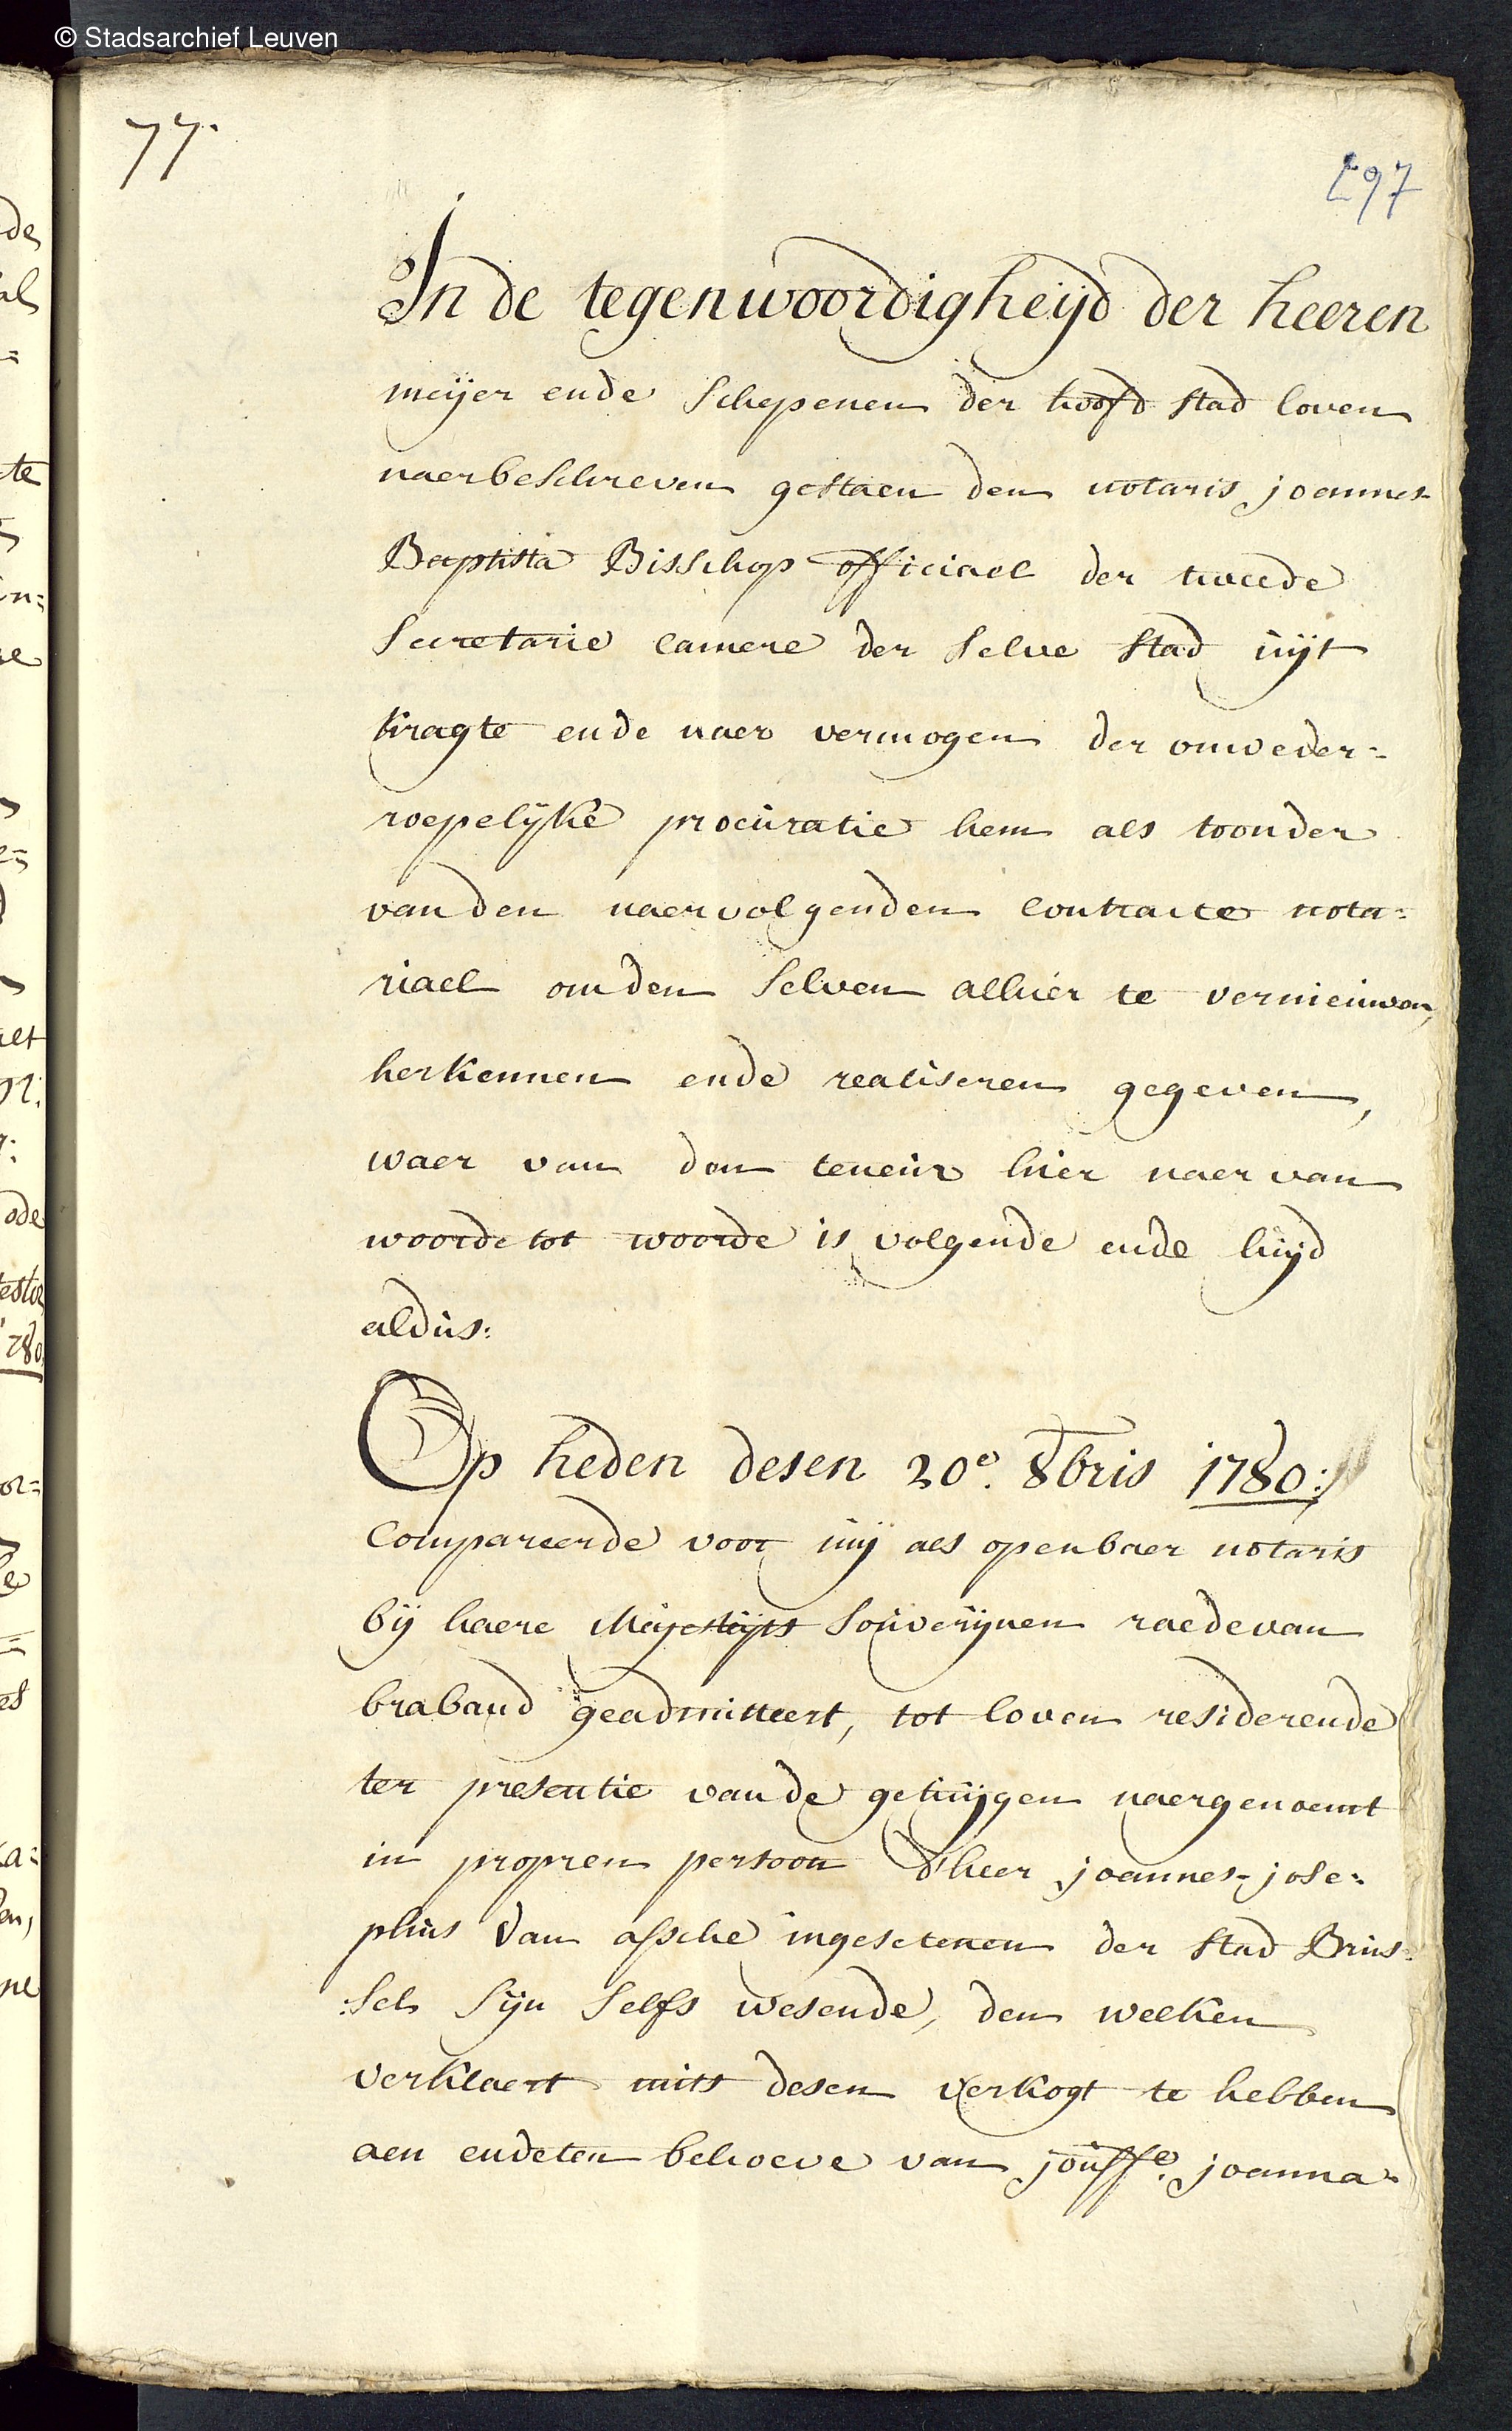 © Stadsarchief Leuven
77.
297
In de tegenwoordigheijd der heeren
meijer ende schepenen der hoofd stad loven
naerbeschreven gestaen den notaris joannes
Baptista Bisschop officiael der tweede
secretarie camere der selve stad üijt
kragte ende naer vermogen der onweder=
roepelijke procüratie hem als toonder
vanden naervolgenden contracte nota=
riael omden selven alhier te vernieüwen,
herkennen ende realiseren gegeven,
waer van den teneür hier naer van
woorde tot woorde is volgende ende lüijd
aldüs:
Op heden desen 20e. 8bris 1780:
Compareerde voor mij als openbaer notaris
bij haere Majestijts soüverijnen raede van
braband geadmitteert, tot loven residerende
ter presentie vande getüijgen naergenoemt
in propren persoon d'heer joannes jose=
phüs Van assche ingesetenen der stad Brüs=
:sel sijn selfs wesende, den welken
verklaert mits desen verkogt te hebben
aen ende ten behoeve van joüffe. joanna=